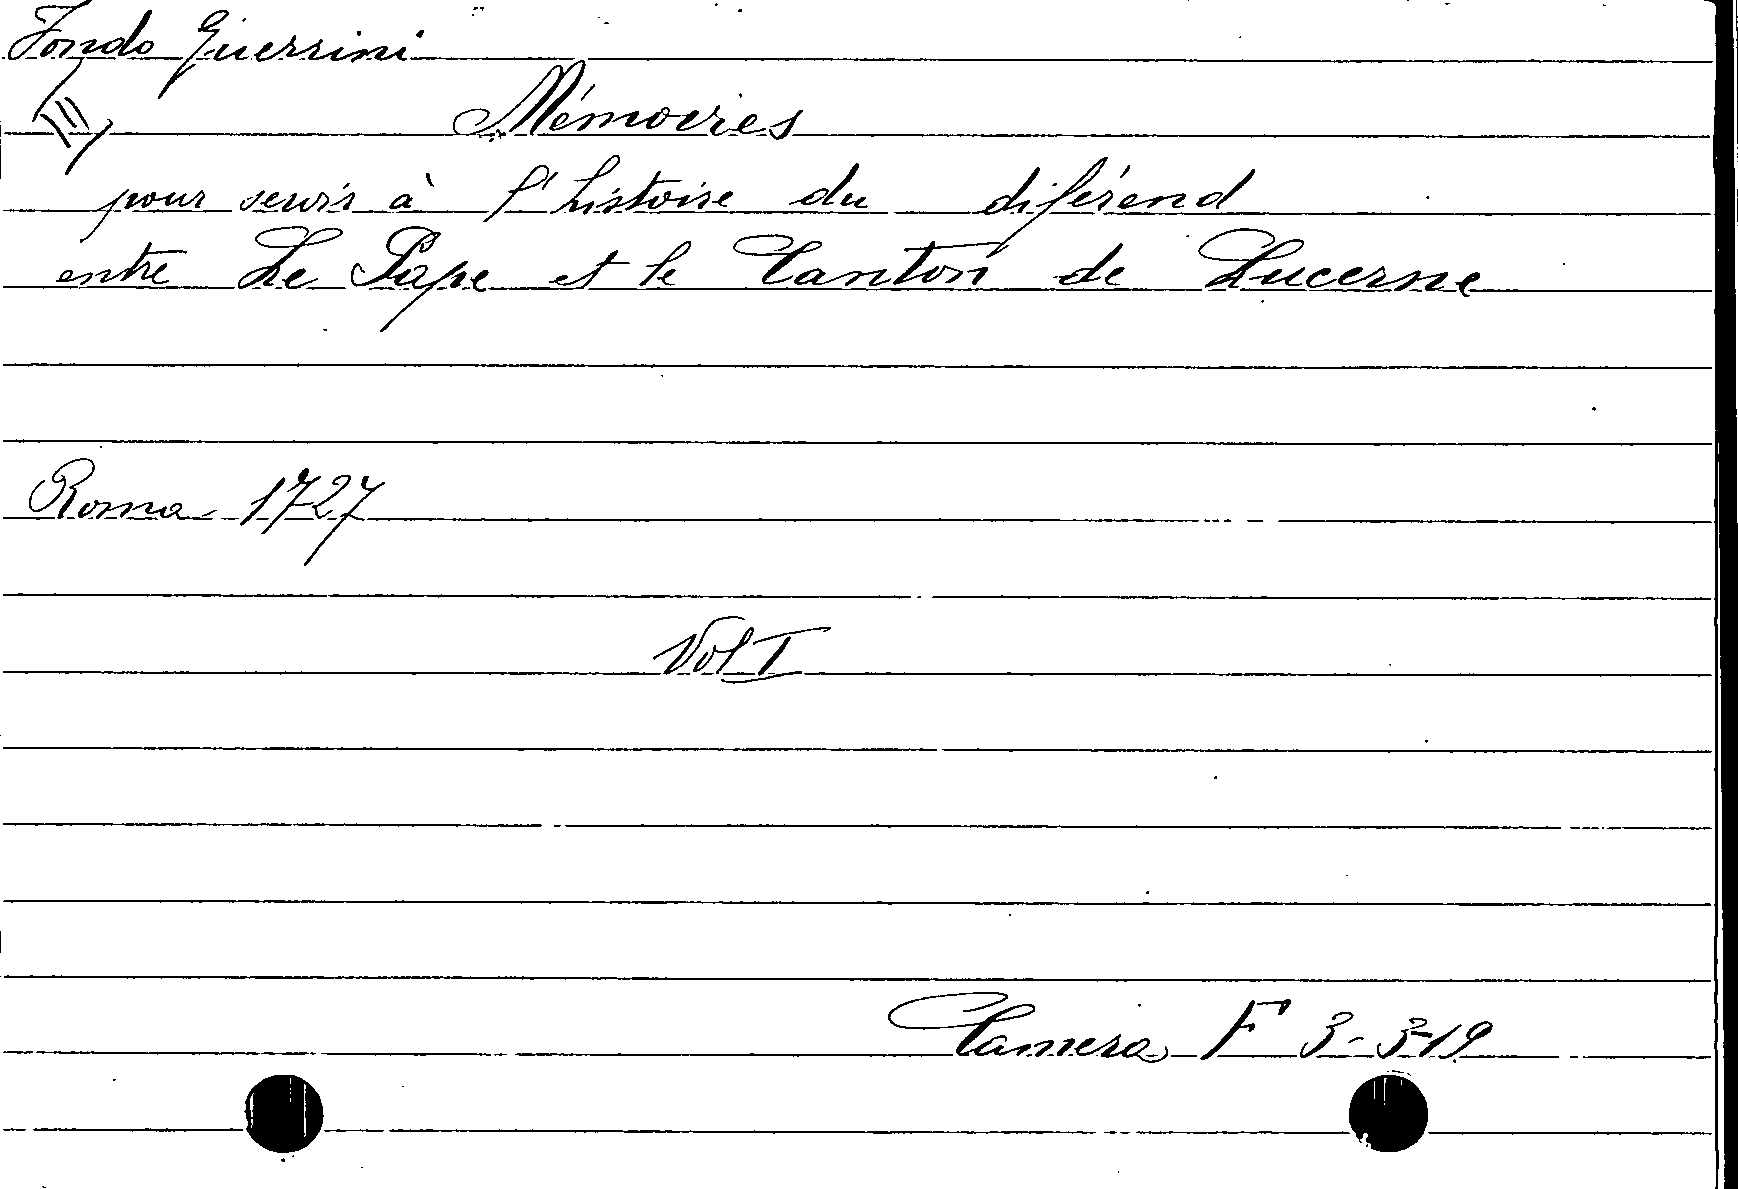 Fondo Guerrini
Mémoires
pour servir à l'histoire du diférend
entre Le Pape et le Canton de Lucerne
Roma 1727
Vol I
Camera F 3-3-19